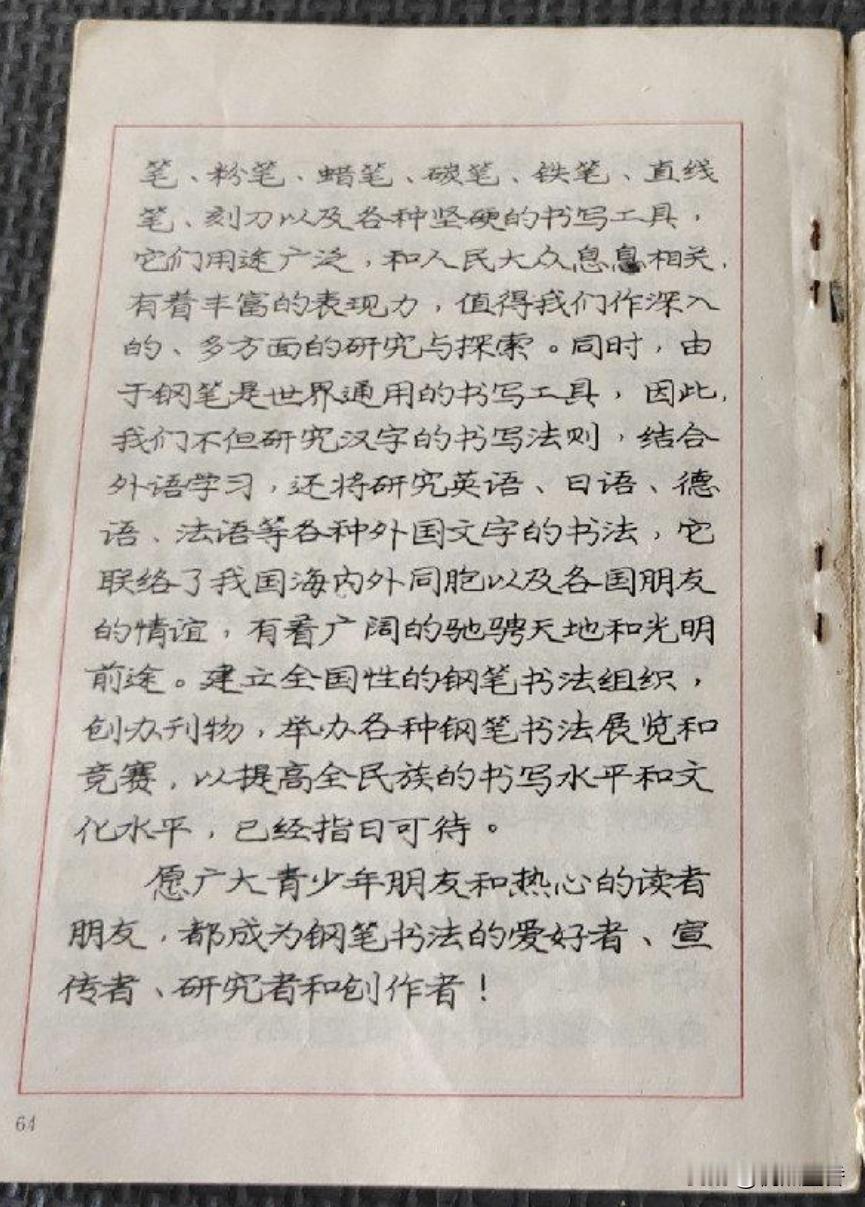 笔、粉笔、蜡笔、碳笔、铁笔、直线
笔、刻刀以及各种坚硬的书写工具，
它们用途广泛，和人民大众息息相关，
有着丰富的表现力，值得我们作深入
的、多方面的研究与探索。同时，由
于钢笔是世界通用的书写工具，因此，
我们不但研究汉字的书写法则，结合
外语学习，还将研究英语、日语、德
语、法语等各种外国文字的书法，它
联络了我国海内外同胞以及各国朋友
的情谊，有着广阔的驰骋天地和光明
前途。建立全国性的钢笔书法组织，
创办刊物，举办各种钢笔书法展览和
竞赛，以提高全民族的书写水平和文
化水平，已经指日可待。
愿广大青少年朋友和热心的读者
朋友，都成为钢笔书法的爱好者、宣
传者、研究者和创作者！
64